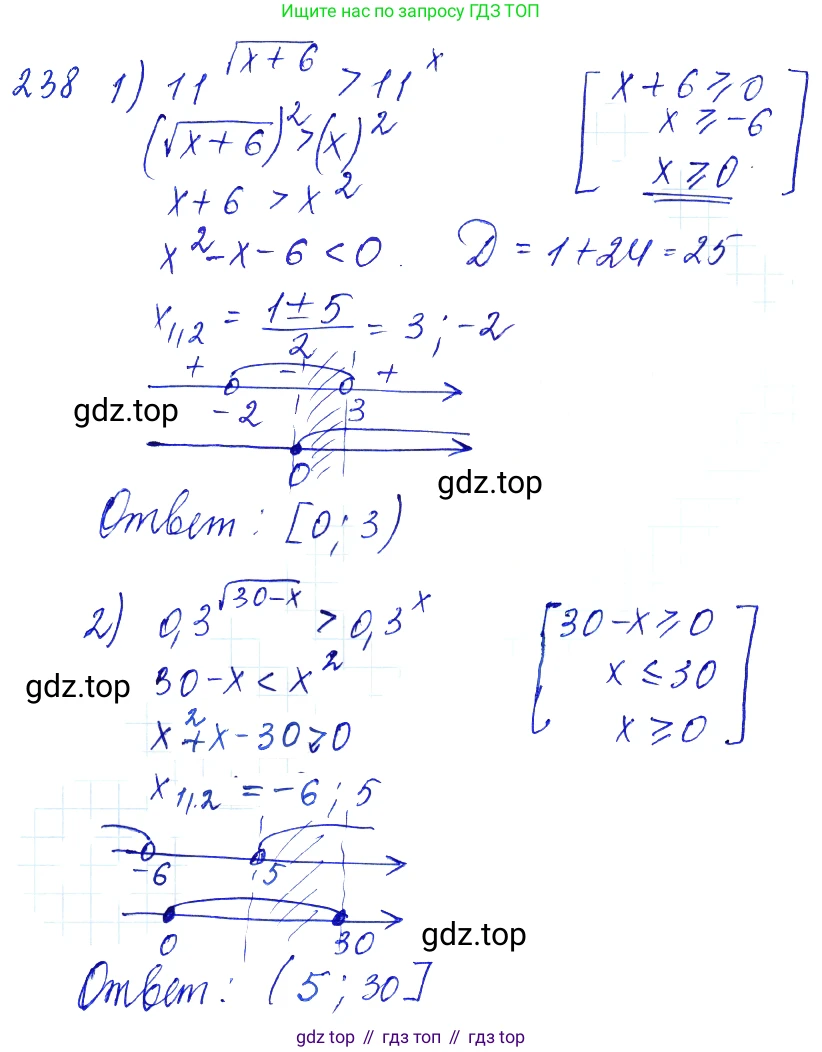 Ищите нас по запросу ГДЗ ТОП
238 1) 11^√(x+6) > 11^x [x+6 ⩾ 0
(√(x+6))² > (x)² x ⩾ -6
x+6 > x² x ⩾ 0]
x²-x-6 < 0. D = 1+24 = 25
x₁,₂ = (1±5)/2 = 3; -2
+ - +
-2 3
gdz.top
0
gdz.top
Ответ: [0; 3)
2) 0,3^√(30-x) > 0,3^x [30-x ⩾ 0
30-x < x² x ≤ 30
gdz.top
x²+x-30 > 0 x ⩾ 0]
x₁,₂ = -6; 5
-6 5
0 30
gdz.top
Ответ: (5; 30]
gdz top // гдз топ // gdz.top